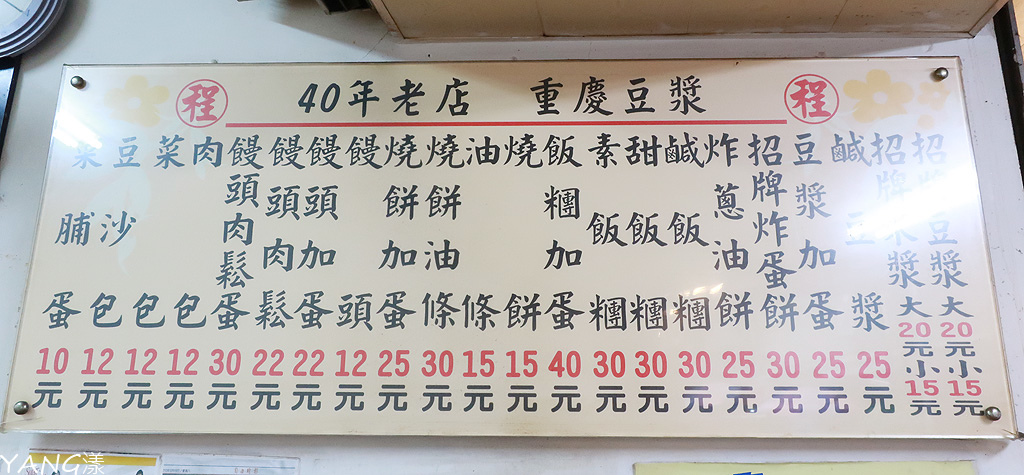 程 40年老店 重慶豆漿 程
招牌豆漿大20元小15元
招牌米漿大20元小15元
鹹豆漿25元
豆漿加蛋25元
招牌炸蛋餅30元
炸蔥油餅25元
鹹飯糰30元
甜飯糰30元
素飯糰30元
飯糰加蛋40元
燒餅15元
油條15元
燒餅油條30元
燒餅加蛋25元
饅頭12元
饅頭加蛋22元
饅頭肉鬆22元
饅頭肉鬆蛋30元
肉包12元
菜包12元
豆沙包12元
菜脯蛋10元
YANG漾